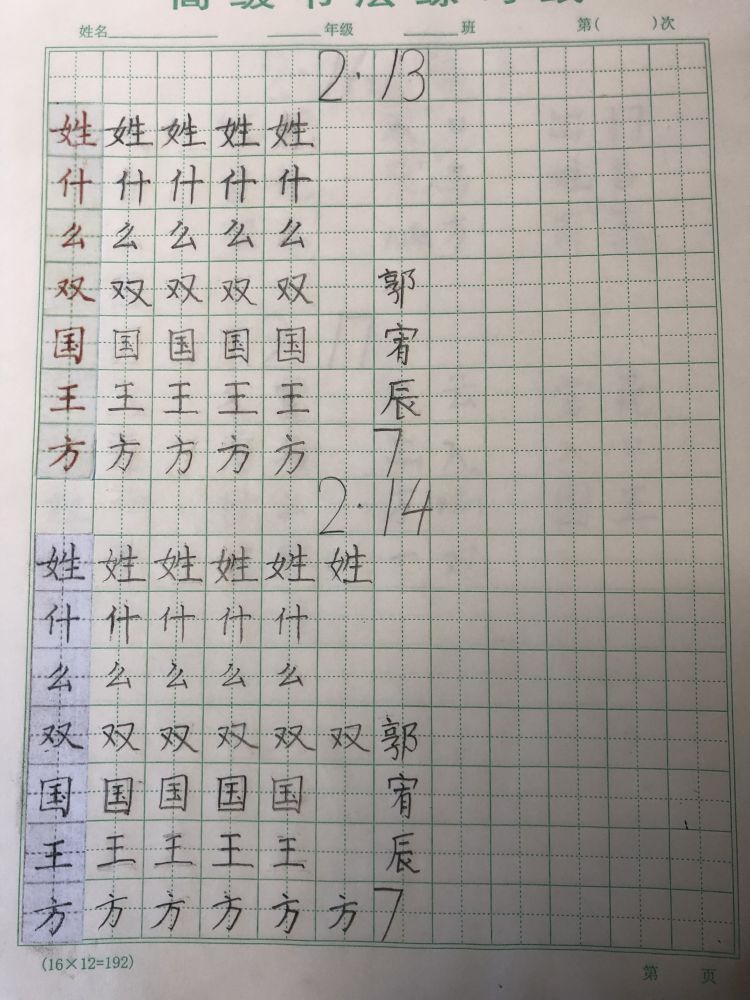 高级书法练习纸
姓名 年级 班 第( )次
2·13
姓 姓 姓 姓 姓
什 什 什 什 什
么 么 么 么 么
双 双 双 双 双 郭
国 国 国 国 国 宥
王 王 王 王 王 辰
方 方 方 方 方 7
2·14
姓 姓 姓 姓 姓 姓
什 什 什 什 什
么 么 么 么 么
双 双 双 双 双 双 郭
国 国 国 国 国 宥
王 王 王 王 王 辰
方 方 方 方 方 方 7
(16×12=192) 第 页